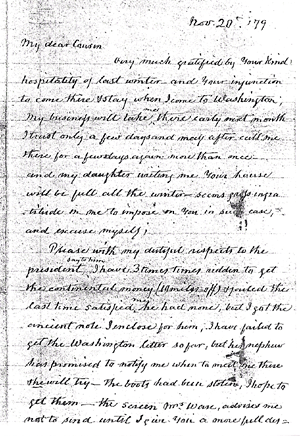 Nov. 20th '79
My dear Cousin
Very much gratified by Your Kind
hospitality of last winter - and Your injunction
to come there & stay when I come to Washington;
My business will take me there early next month
I trust only a few days and may after call me
there for a few days again more than once -
and my daughter writing me Your house
will be full all the winter - seems gross ingra-
titude in me to impose on You in such case,
and excuse myself;
Please with my dutiful respects to the
president, say to him I have 3 times times ridden to get
the continental money (10 miles off) & failed the
last time satisfied, he had none, but I got the
ancient note I enclose for him, I have failed to
get the Washington letter so far, but her nephew
has promised to notify me when to meet me there
she will try - The boots had been stolen, I hope to
get them - the screen Mrs Ware, advises me
not to send until I give You a more full des=